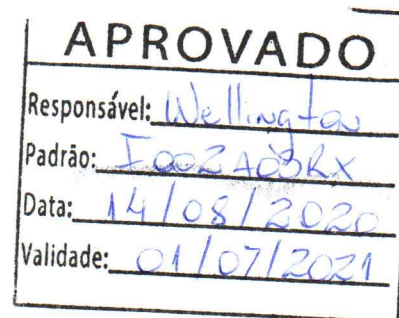 APROVADO
Responsável: Wellington
Padrão: I002A03RX
Data: 14/08/2020
Validade: 01/07/2021